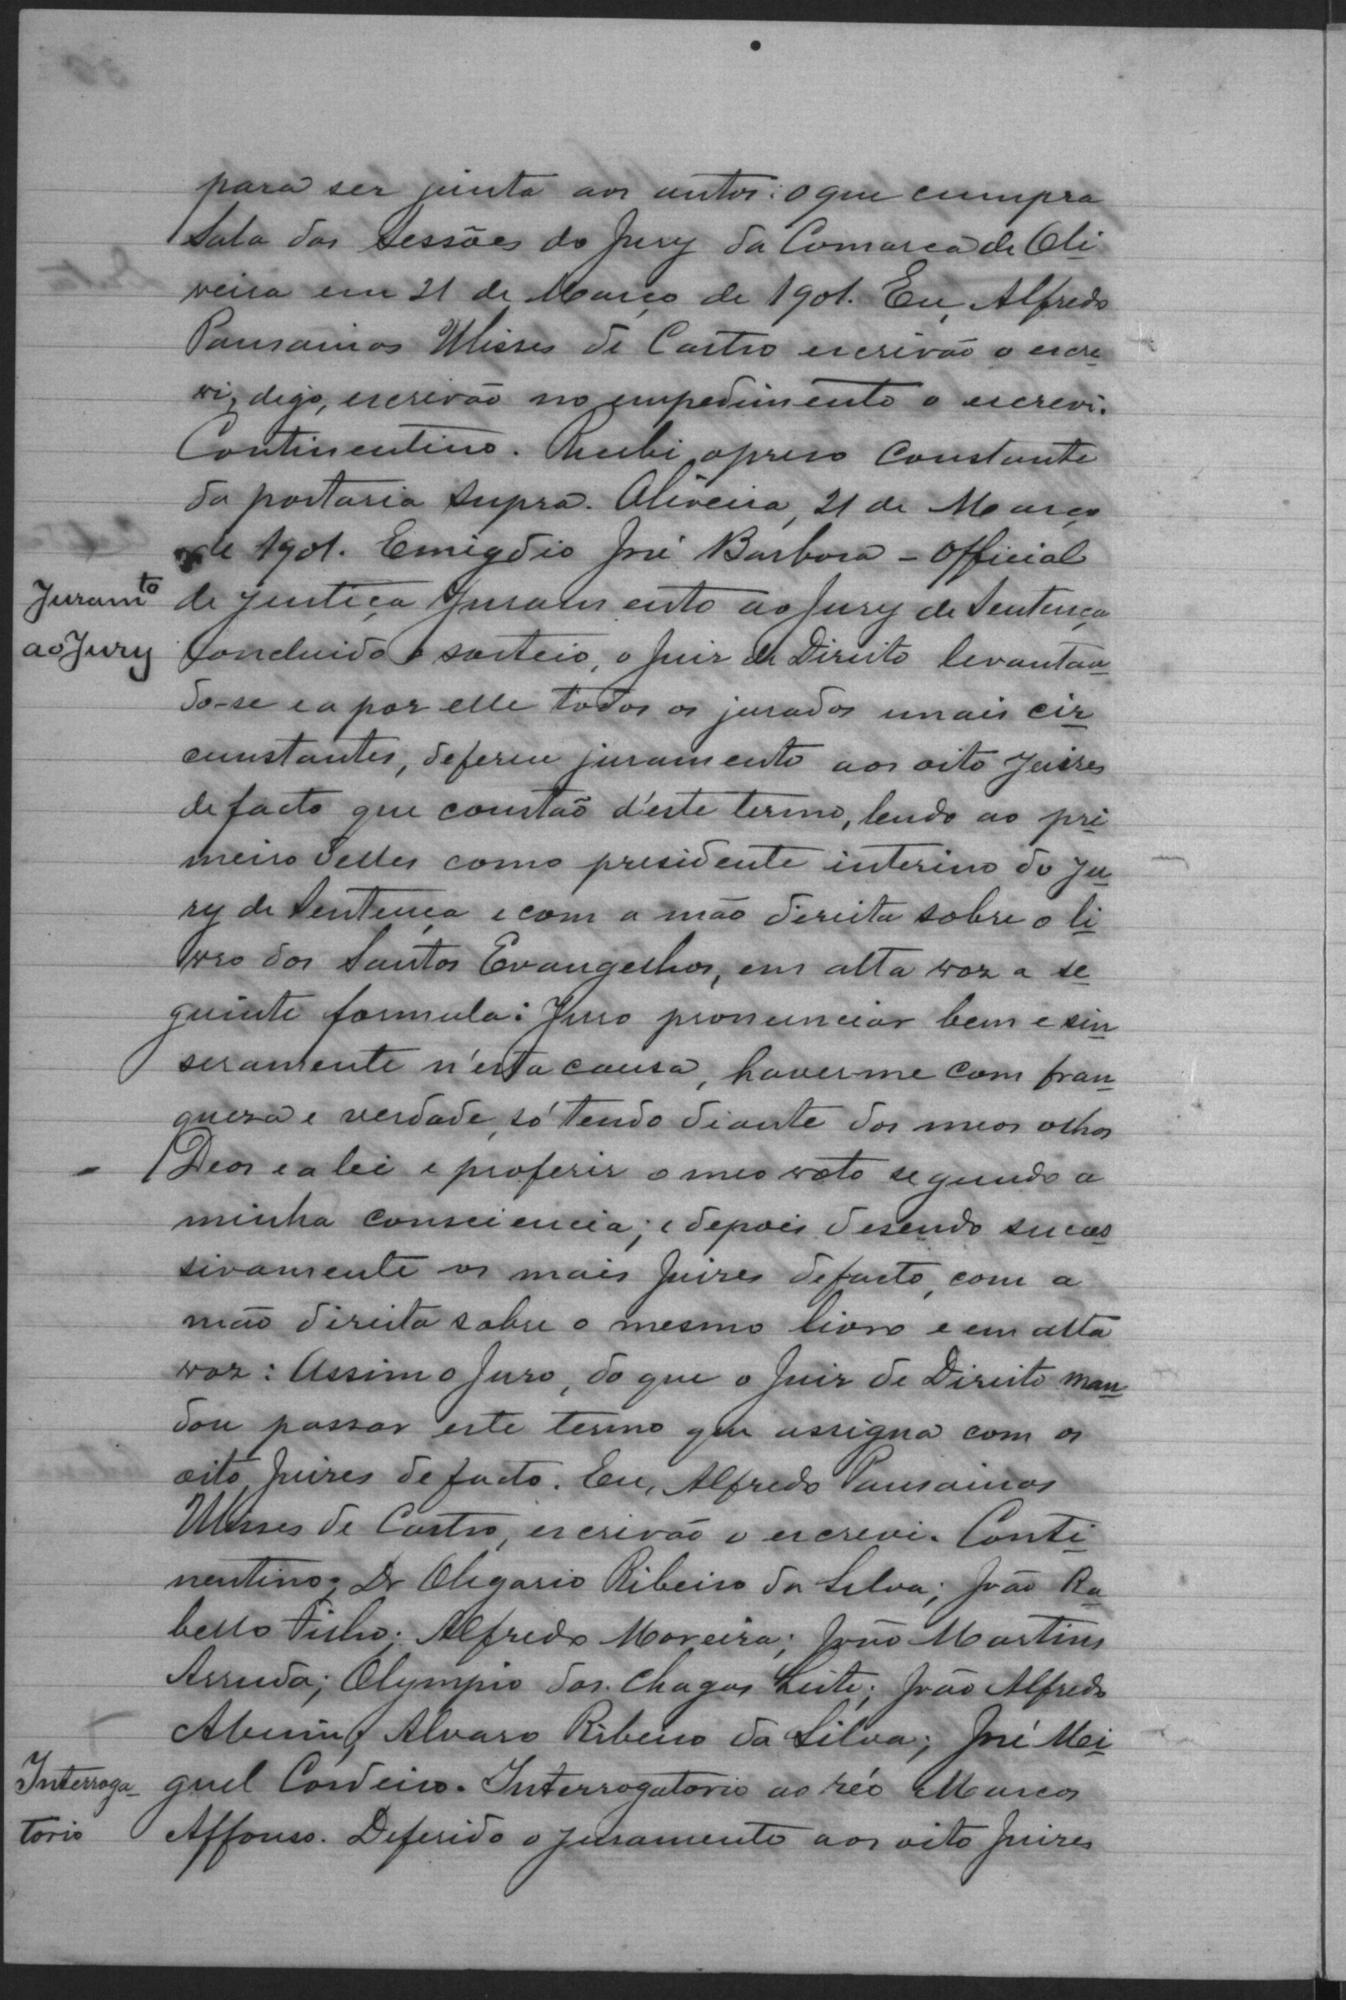 para ser junta aos autos: o que cumpra
Sala das Sessões do Jury da Comarca de Oli
veira em 21 de Março de 1901. Eu, Alfredo
Pausanias Ulisses de Castro escrivão o escre
vi, digo, escrivão no empedimento o escrevi.
Continentino. Recebi o preso constante
da portaria supra. Oliveira, 21 de Março
de 1901. Emigdio José Barbosa - Official
Juramto
de justiça Juramento ao Jury de Sentença
ao Jury
Concluido o sorteio, o Juiz de Direito levantan
do-se e a por elle todos os jurados e mais cir
cunstantes, deferiu juramento aos oito Juizes
de facto que constão d'este termo, lendo ao pri
meiro delles como presidente interino do Ju
ry de Sentença e com a mão direita sobre o li
vro dos Santos Evangelhos, em alta voz a se
guinte formula: Juro pronunciar bem e sin
seramente n'esta causa, haver-me com fran
queza e verdade, só tendo diante dos meos olhos
Deos e a lei e proferir o meo voto segundo a
minha consciencia; e depois desendo suces
sivamente os mais Juizes de facto, com a
mão direita sobre o mesmo livro e em alta
voz: Assim o Juro, do que o Juiz de Direito man
dou passar este termo que assigna com os
oito Juizes de facto. Eu, Alfredo Pausanias
Ulisses de Castro, escrivão o escrevi. Conti
nentino; Dr Olegario Ribeiro da Silva; João Ra
bello Filho; Alfredo Moreira; João Martins
Arruda; Olympio das Chagas Leite; João Alfredo
Alvaro Ribeiro da Silva; José Mi
Interroga
guel Cordeiro. Interrogatorio ao réo Marcos
torio
Affonso. Deferido o juramento aos oito Juizes